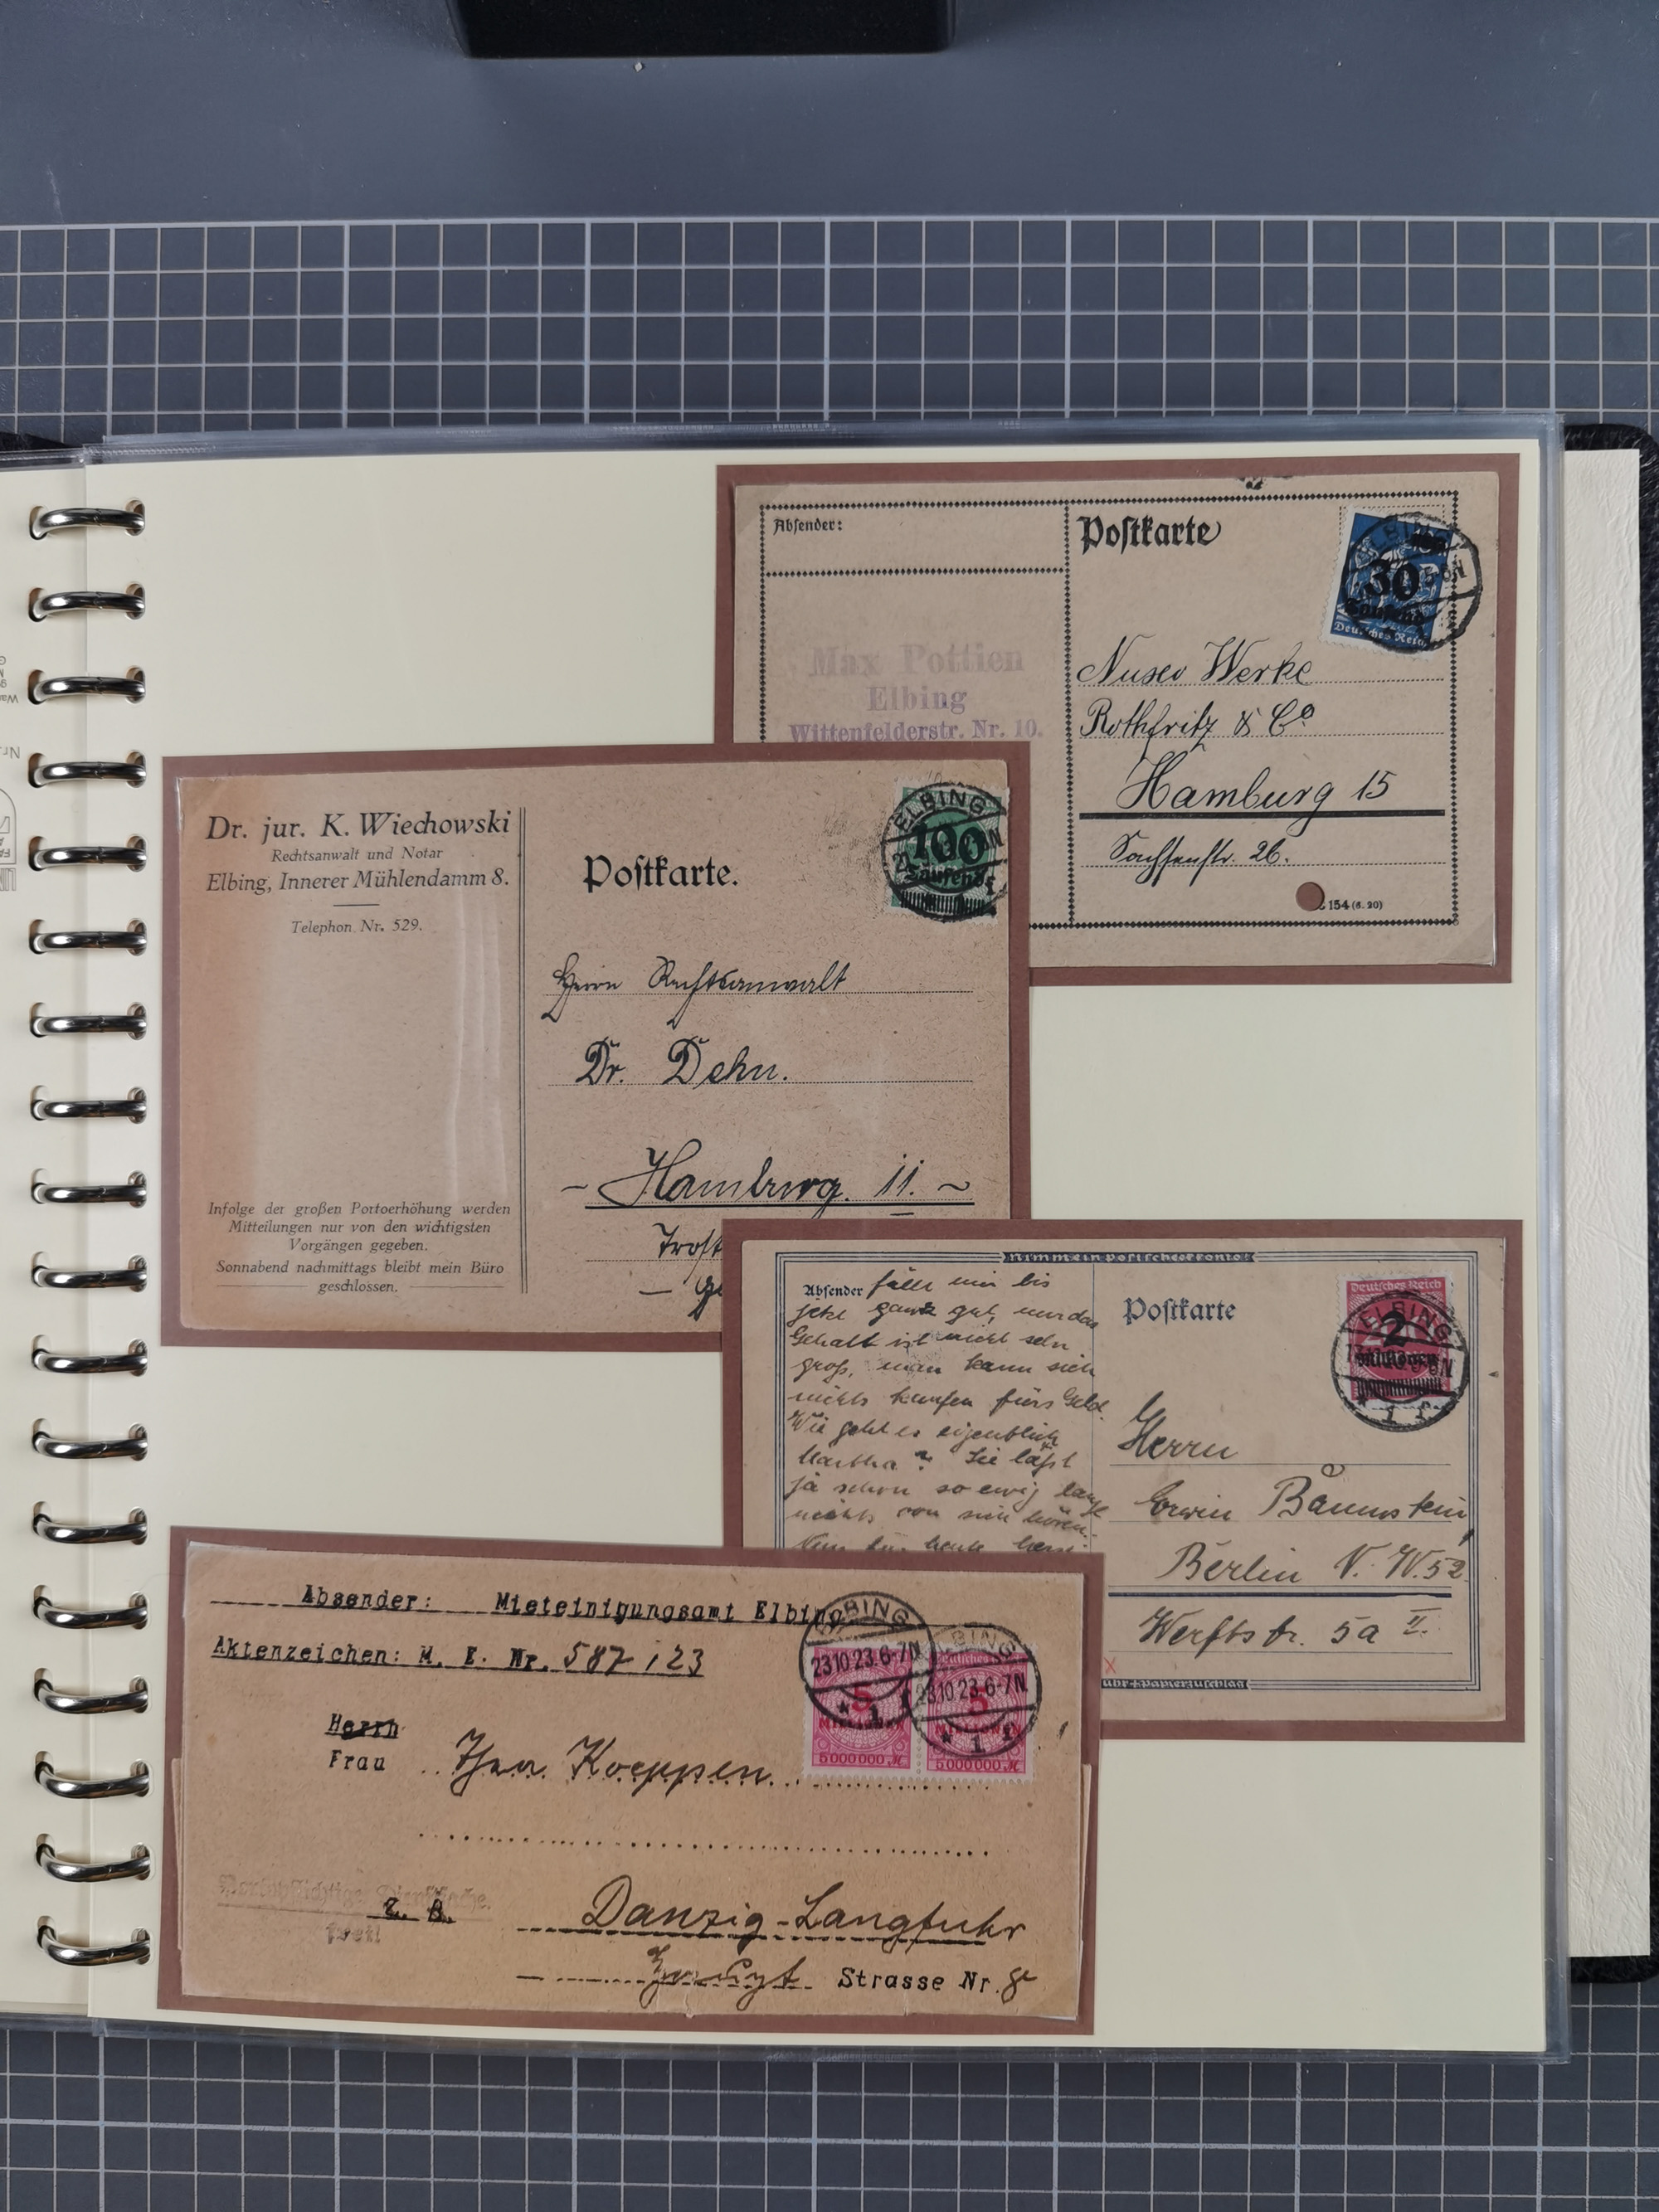 Absender:
Postkarte
30
Tausend
Deutsches Reich
Max Pottien
Elbing
Wittenfelderstr. Nr. 10.
Nusco Werke
Rothfritz & Co
Hamburg 15
Sachsenstr. 26.
154 (6. 20)
Dr. jur. K. Wiechowski
Rechtsanwalt und Notar
Elbing, Innerer Mühlendamm 8.
Telephon Nr. 529.
Infolge der großen Portoerhöhung werden
Mitteilungen nur von den wichtigsten
Vorgängen gegeben.
Sonnabend nachmittags bleibt mein Büro
geschlossen.
Postkarte.
ELBING
100
Tausend
Herrn Rechtsanwalt
Dr. Dehn.
- Hamburg. 11. ~
Trost
Nimm ein Postscheckkonto!
Absender
fällt mir bis
jetzt ganz gut, nur das
Gehalt ist nicht sehr
groß, man kann sich
nichts kaufen fürs Geld.
Wie geht es eigentlich
Martha? Sie läßt
ja schon so ewig lange
nichts von sich hören.
Nun für heute
Postkarte
Deutsches Reich
ELBING
2
Millionen
Herrn
Erwin
Berlin N.W. 52
Werftstr. 5a II.
uhr + Papierzuschlag
Absender: Mieteinigungsamt Elbing
Aktenzeichen: M. E. Nr. 587 / 23
ELBING
23.10.23.6-7N
* 1
23.10.23.6-7N
* 1 f
5
MILLIONEN
5000000 M
5
MILLIONEN
5000000 M
Herrn
Frau
Koeppen
Portopflichtige Dienstsache.
Danzig-Langfuhr
Strasse Nr. 8c